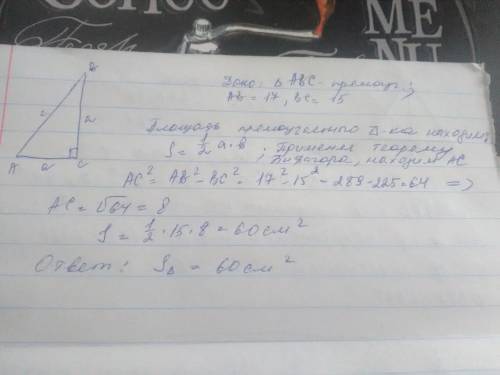 ME
NU
Дано: Δ ABC - прямоуг;
AB = 17, BC = 15
B
c
a
A
a
C
Площадь прямоугольного Δ-ка находим:
S = 1/2 a·b ; Применяя теорему
Пифагора, находим AC
AC² = AB² - BC² = 17² - 15² - 289 - 225 = 64 =>
AC = √64 = 8
S = 1/2 · 15 · 8 = 60 см²
Ответ: SΔ = 60 см²